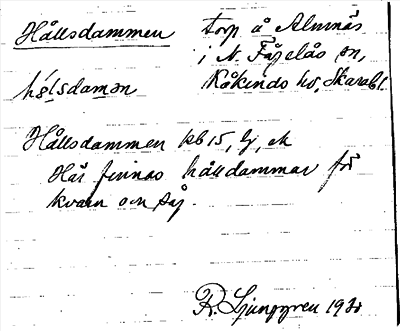 Hållsdammen torp å Almnäs
i N. Fågelås sn,
hɔ́lsdamən Kåkinds hd, Skarabl.
Hållsdammen kb 15, lj, ek
Här finnas hålldammar för
kvarn och såg.
R. Ljunggren 19